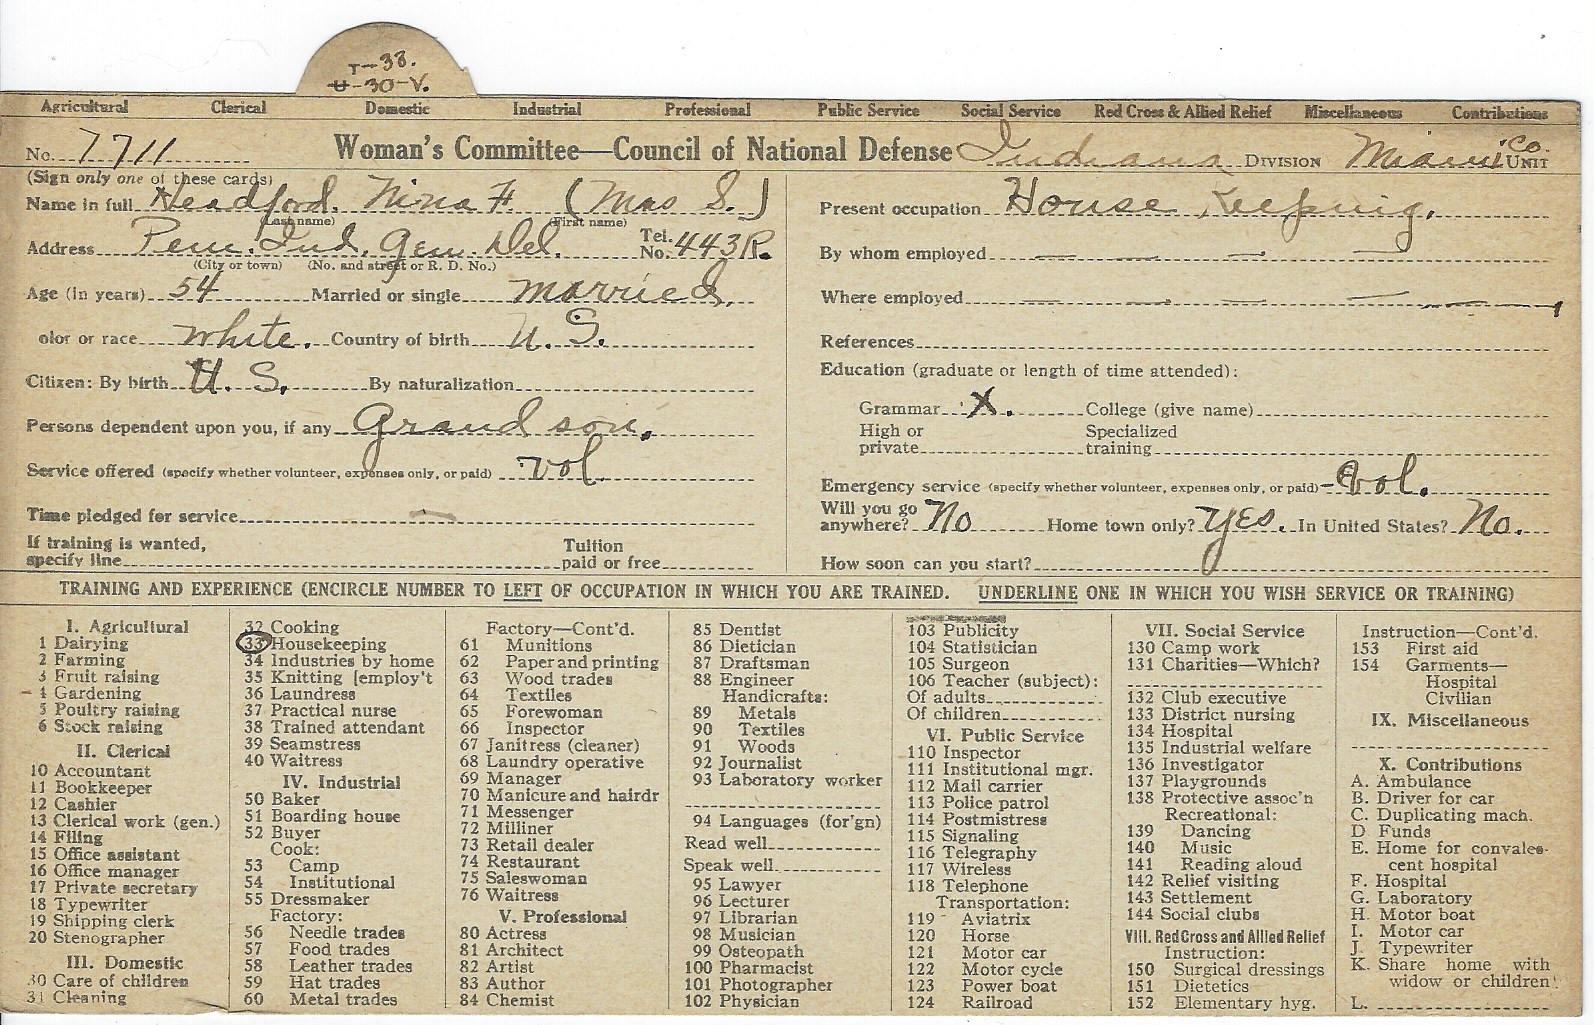 T-33.
U-30-V.
Agricultural Clerical Domestic Industrial Professional Public Service Social Service Red Cross & Allied Relief Miscellaneous Contributions
No. 7711 Woman's Committee—Council of National Defense Indiana DIVISION Miami Co. UNIT
(Sign only one of these cards)
Name in full Headford, Nina H. (Mrs S.)
(Last name) (First name)
Address Peru. Ind. Gen. Del. Tel. No. 443R.
(City or town) (No. and street or R. D. No.)
Age (in years) 54 Married or single married.
olor or race white. Country of birth U. S.
Citizen: By birth U. S. By naturalization
Persons dependent upon you, if any Grand son.
Service offered (specify whether volunteer, expenses only, or paid) vol.
Time pledged for service —
If training is wanted, specify line Tuition paid or free
Present occupation House Keeping.
By whom employed — — — —
Where employed — — — — —
References
Education (graduate or length of time attended):
Grammar X. College (give name)
High or private Specialized training
Emergency service (specify whether volunteer, expenses only, or paid) Vol.
Will you go anywhere? No Home town only? Yes. In United States? No.
How soon can you start?
TRAINING AND EXPERIENCE (ENCIRCLE NUMBER TO LEFT OF OCCUPATION IN WHICH YOU ARE TRAINED. UNDERLINE ONE IN WHICH YOU WISH SERVICE OR TRAINING)
I. Agricultural
1 Dairying
2 Farming
3 Fruit raising
4 Gardening
5 Poultry raising
6 Stock raising
II. Clerical
10 Accountant
11 Bookkeeper
12 Cashier
13 Clerical work (gen.)
14 Filing
15 Office assistant
16 Office manager
17 Private secretary
18 Typewriter
19 Shipping clerk
20 Stenographer
III. Domestic
30 Care of children
31 Cleaning
32 Cooking
33 Housekeeping
34 Industries by home
35 Knitting [employ't
36 Laundress
37 Practical nurse
38 Trained attendant
39 Seamstress
40 Waitress
IV. Industrial
50 Baker
51 Boarding house
52 Buyer
Cook:
53 Camp
54 Institutional
55 Dressmaker
Factory:
56 Needle trades
57 Food trades
58 Leather trades
59 Hat trades
60 Metal trades
Factory—Cont'd.
61 Munitions
62 Paper and printing
63 Wood trades
64 Textiles
65 Forewoman
66 Inspector
67 Janitress (cleaner)
68 Laundry operative
69 Manager
70 Manicure and hairdr
71 Messenger
72 Milliner
73 Retail dealer
74 Restaurant
75 Saleswoman
76 Waitress
V. Professional
80 Actress
81 Architect
82 Artist
83 Author
84 Chemist
85 Dentist
86 Dietician
87 Draftsman
88 Engineer
Handicrafts:
89 Metals
90 Textiles
91 Woods
92 Journalist
93 Laboratory worker
94 Languages (for'gn)
Read well
Speak well
95 Lawyer
96 Lecturer
97 Librarian
98 Musician
99 Osteopath
100 Pharmacist
101 Photographer
102 Physician
103 Publicity
104 Statistician
105 Surgeon
106 Teacher (subject):
Of adults
Of children
VI. Public Service
110 Inspector
111 Institutional mgr.
112 Mail carrier
113 Police patrol
114 Postmistress
115 Signaling
116 Telegraphy
117 Wireless
118 Telephone
Transportation:
119 Aviatrix
120 Horse
121 Motor car
122 Motor cycle
123 Power boat
124 Railroad
VII. Social Service
130 Camp work
131 Charities—Which?
132 Club executive
133 District nursing
134 Hospital
135 Industrial welfare
136 Investigator
137 Playgrounds
138 Protective assoc'n
Recreational:
139 Dancing
140 Music
141 Reading aloud
142 Relief visiting
143 Settlement
144 Social clubs
VIII. Red Cross and Allied Relief
Instruction:
150 Surgical dressings
151 Dietetics
152 Elementary hyg.
Instruction—Cont'd.
153 First aid
154 Garments—
Hospital
Civilian
IX. Miscellaneous
X. Contributions
A. Ambulance
B. Driver for car
C. Duplicating mach.
D. Funds
E. Home for convales-
cent hospital
F. Hospital
G. Laboratory
H. Motor boat
I. Motor car
J. Typewriter
K. Share home with
widow or children!
L.